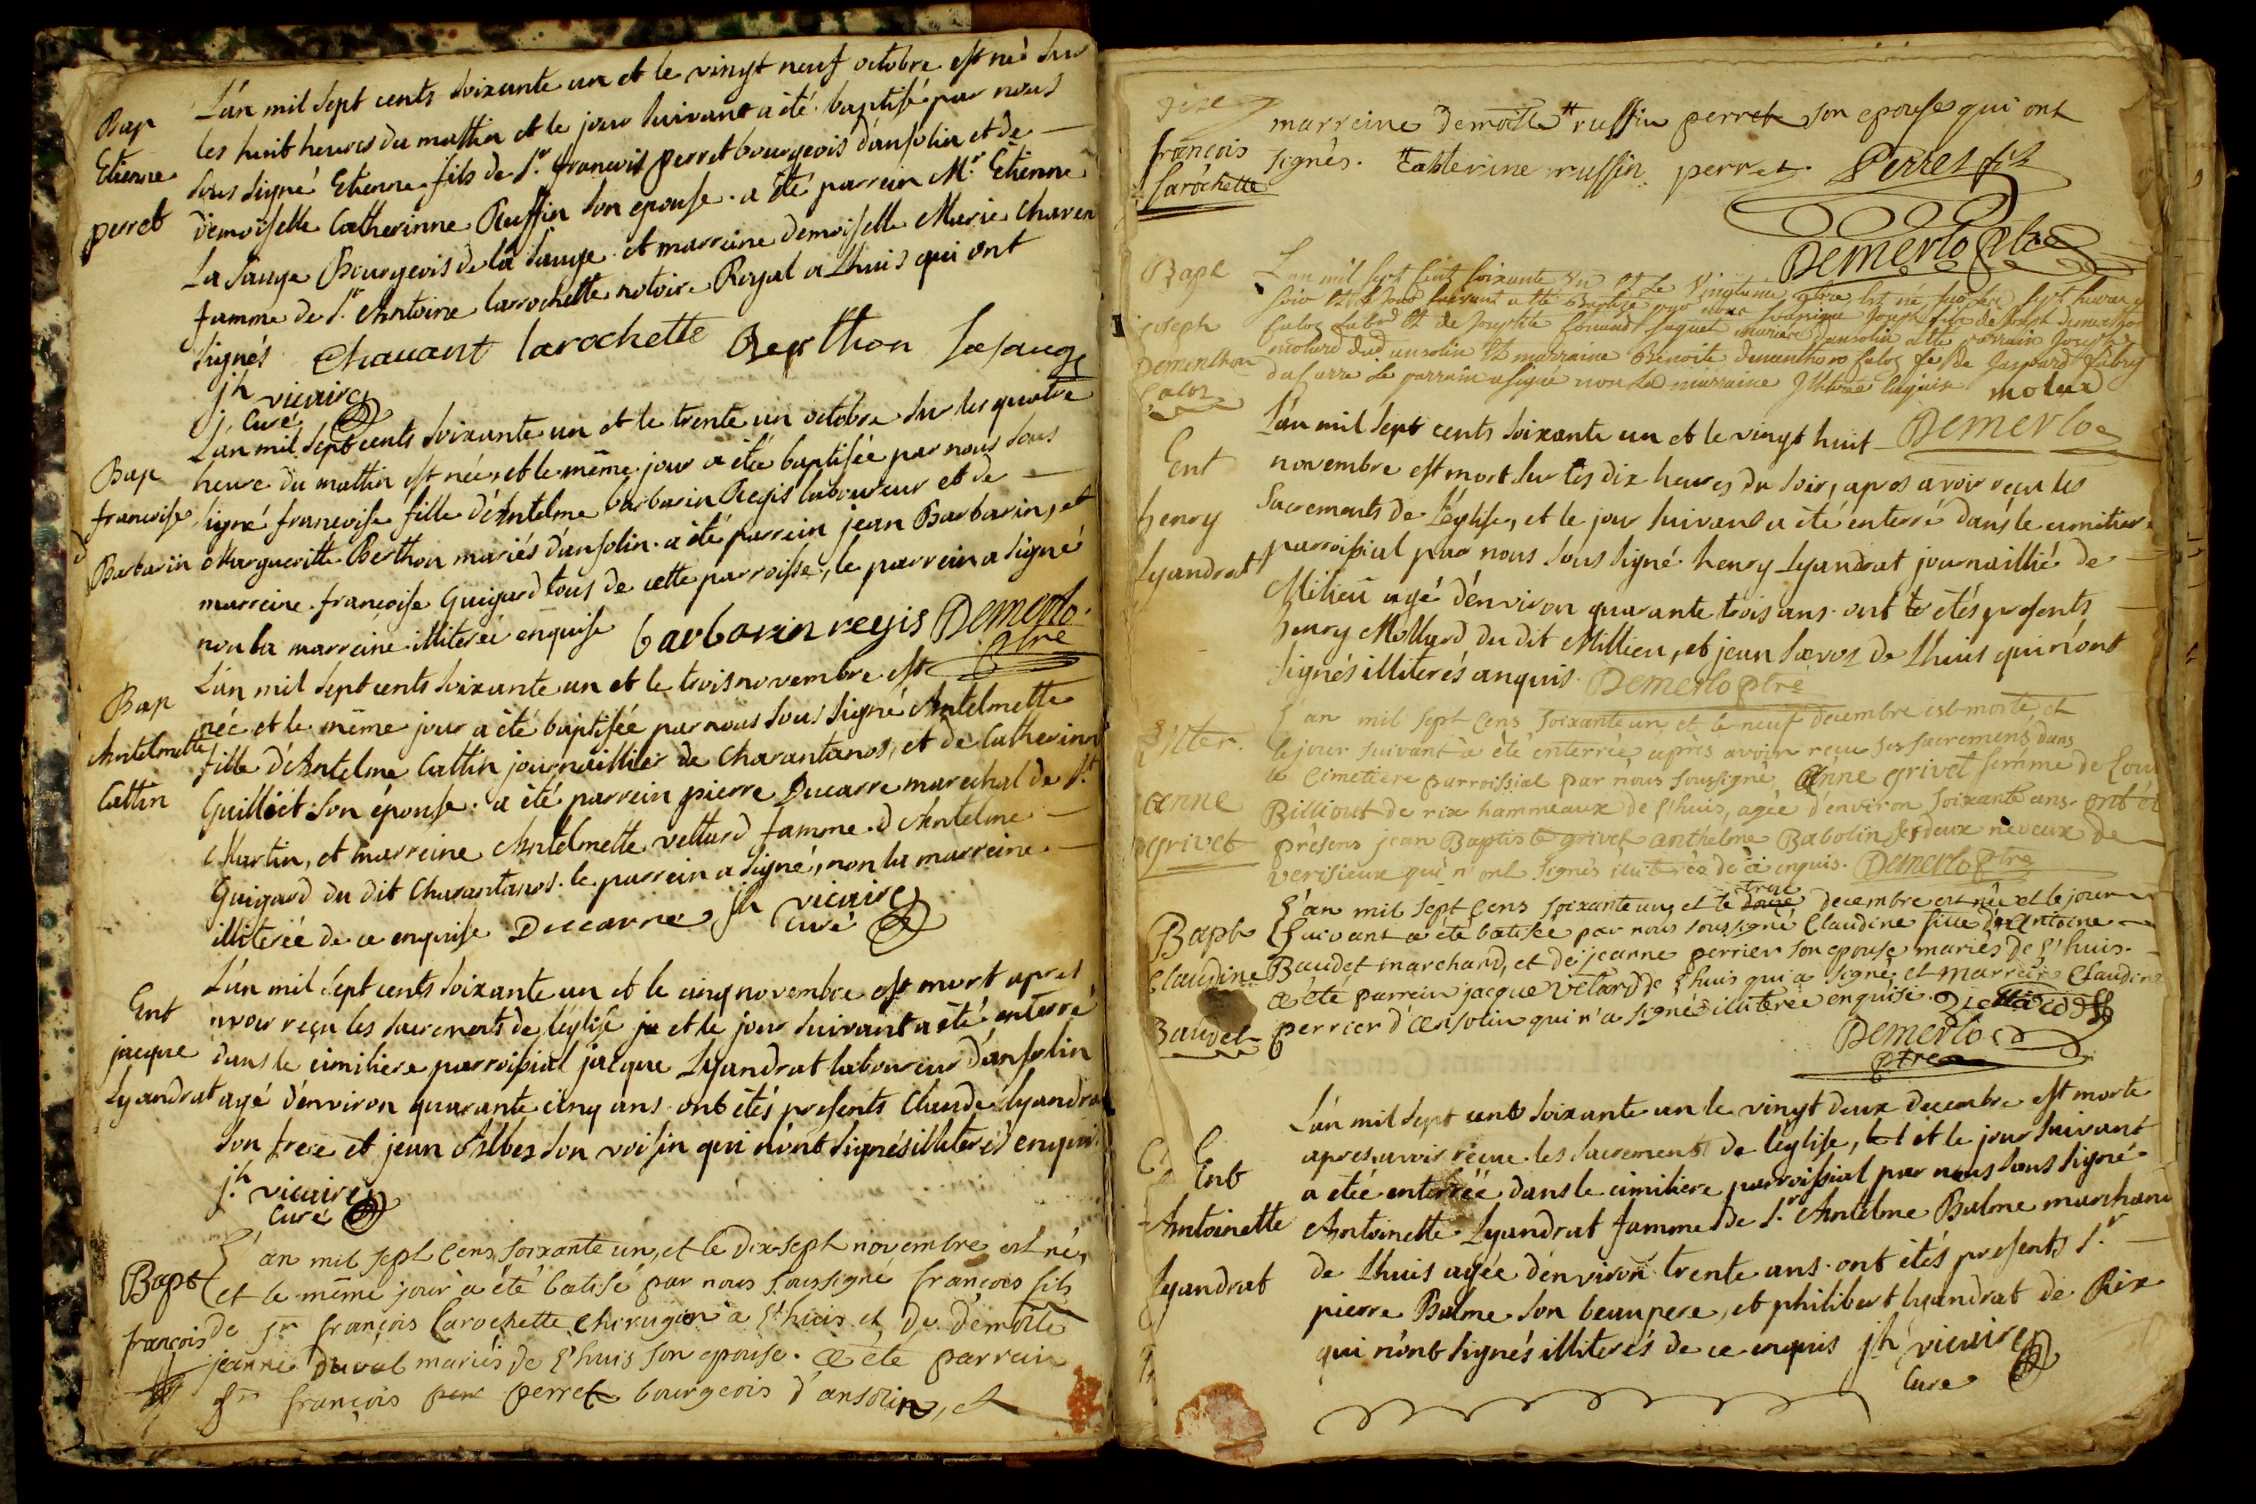 L'an mil sept cents soixante un et le vingt neuf octobre est né sur
Bap
les huit heures du mattin et le jour suivant a été baptisé par nous
Etienne
sous signé Etienne fils de Sr. francois perret bourgeois d'ansolin et de
perret
demoiselle Catherinne Ruffin son epouse. a été parrein Mr. Etienne
La Sauge Bourgeois de la Sauge et marreine demoiselle Marie Chavent
famme de Sr. Antoine larrochette notoire Royal a Lhuis qui ont
signés Chauant larochette Berthon Lasauge
jh vicaire
Curé
L'an mil sept cents soixante un et le trente un octobre sur les quatre
Bap
heure du mattin est née, et le même jour a étée baptisée par nous sous
francoise
signé francoise fille d'Antelme barbarin Regis laboureur et de
Barbarin
Margueritte Berthon mariés d'ansolin. a été parrein jean Barbarin, et
marreine francoise Guigard tous de cette parroisse, le parrein a signé
non la marreine illiterée enquise barbarin regis Demerlo
ptre
L'an mil sept cents soixante un et le trois novembre est
Bap
née et le même jour a été baptisée par nous sous signé Antelmette
Antelmette
fille d'Antelme Cattin journaillier de Charantanos, et de Catherinne
Cattin
Guilliet son épouse. a été parrein pierre Ducarre marechal de St.
Martin, et marreine Antelmette vettard famme d'Antelme
Guigard du dit Charantanos. le parrein a signé, non la marreine
illiterée de ce enquise Duccarre jh vicaire
Curé
L'an mil sept cents soixante un et le cinq novembre est mort apres
Ent
avoir reçu les sacrements de l'église et le jour suivant a été enterré
jacque
dans le cimitiere parroissial jacque Lyandrat laboureur d'ansolin
Lyandrat
agé d'environ quarante cinq ans. ont étés presents Claude Lyandrat
son frere et jean Albes son voisin qui n'ont signés illiterés enquis
jh vicaire
Curé
L'an mil sept cens soixante un, et le dix-sept novembre est né,
Bapt
et le même jour a été batisé par nous soussigné françois fils
françois
de sr françois Larochette chirugien a L'huis et de demoile
jeanne duval mariés de L'huis son epouse. a été parrein
sr françois perret bourgeois d'ansolin, et
françois
Larochette
marreine demoille ruffin perret son epouse qui ont
signés. Catherine ruffin perret. Perret fils
Demerlo ptre
Bapt
L'an mil sept cent soixante un et le
joseph
soir et le jour suivant a été Baptisé
Dementhon
molard dud ansolin et marraine Benoite dementhon
du carre le parrain a signé non la marraine illiterée enquise molard
L'an mil sept cents soixante un et le vingt huit Demerlo
Ent
novembre est mort sur les dix heures du soir, apres avoir reçu les
henry
Sacrements de L'église, et le jour suivant a été enterré dans le cimitiere
Lyandrat
parroissial par nous sous signé henry Lyandrat journaillié de
Milieu agé d'environ quarante trois ans. ont étés presents
henry Mollard du dit Millieu, et jean Sarvoz de Lhuis qui n'ont
signés illiterés anquis. Demerlo ptre
L'an mil sept cens soixante un, et le neuf decembre est morte, et
Enter.
le jour suivant a été enterrée après avoir reçu ses sacremens, dans
le cimetiere parroissial par nous soussigné, Anne grivet femme de Loui
anne
Billiout de rix hammeaux de L'huis, agée d'environ soixante ans. ont été
grivet
présens jean Baptiste grivet anthelme Babolin ses deux neveux de
verisieux qui n'ont signés illiterés de ce enquis. Demerlo ptre
L'an mil sept cens soixante un, et le treze decembre est née et le jour
Bapt
suivant a été batisée par nous soussigné Claudine fille d'Antoine
Claudine
Baudet marchand, et de jeanne perrier son epouse mariés de L'huis.
a été parrein jacque vétard de L'huis qui a signé, et marreine Claudine
Baudet
perrier d'ansolin qui n'a signé illiterée enquise.
Demerlo
ptre
L'an mil sept cents soixante un le vingt deux decembre est morte
apres avoir reçue les sacrements de l'église, et le jour suivant
Ent
a étée enterrée dans le cimitiere parroissial par nous sous signé
Antoinette
Antoinette Lyandrat famme de Sr. Antelme Balme marchand
Lyandrat
de Lhuis agée d'environ trente ans. ont étés presents Sr.
pierre Balme son beaupere, et philibert lyandrat de Rix
qui n'ont signés illiterés de ce enquis jh vicaire
Cure